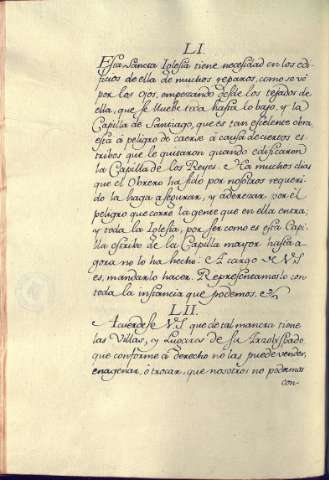 LI.
Esta Sancta Iglesia tiene necesidad en los edi-
ficios de ella de muchos reparos, como se vé
por los ojos, empezando desde los tejados de
ella, que se llueve toda hasta lo bajo, y la
Capilla de Santiago, que es tan escelente obra
está á peligro de caerse á causa de ciertos es-
tribos que le quitaron quando edificaron
la Capilla de los Reyes. Ha muchos dias
que el Obrero ha sido por nosotros requeri-
do la haga asegurar, y aderezar por el
peligro que corre la gente que en ella entra;
y toda la Iglesia, por ser como es esta Capi-
lla estribo de la Capilla mayor hasta a-
gora no lo ha hecho. A cargo de V.S.
es, mandarlo hacer. Representamoslo con
toda la instancia que podemos.
LII.
Acuerdese V.S. que de tal manera tiene
las Villas, y Lugares de su Arzobispado,
que conforme á derecho no las puede vender,
enagenar, ó trocar, que nosotros no podemos
con-